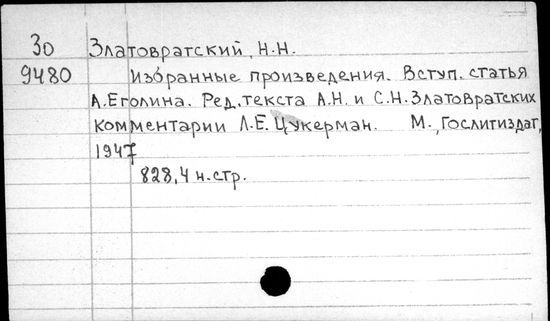 30 Златовратский, Н.Н.
9480 Избранные произведения. Вступ. статья
А.Еголина. Ред. текста А.Н. и С.Н. Златовратских
Комментарии Л.Е. Цукерман. М., Гослитиздат,
1947
828, 4 н. стр.